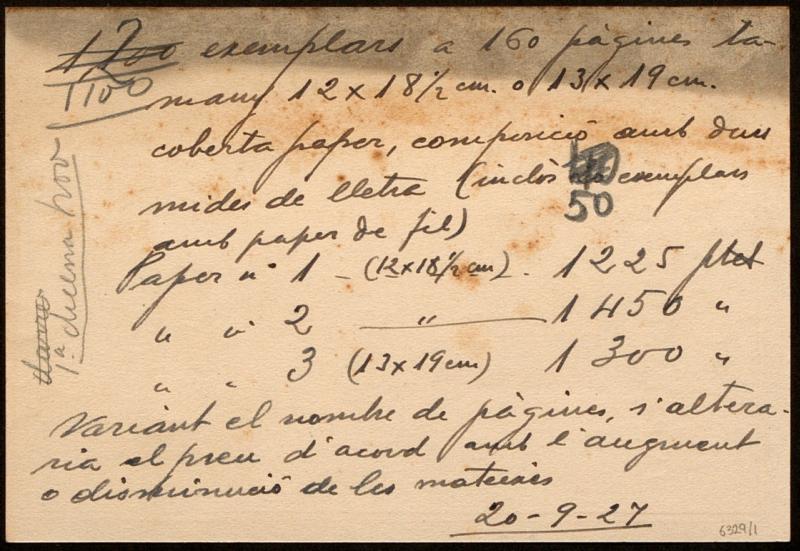 1200 exemplars a 160 pàgines ta-
1100
many 12 x 18 1/2 cm. o 13 x 19 cm.
coberta paper, composició amb dues
mides de lletra (inclòs exemplars
50
amb paper de fil)
Paper nº 1 - (12x18 1/2 cm). 1225 ptes
" " 2 " 1450 "
" " 3 (13x19 cm) 1300 "
Variant el nombre de pàgines, s'altera-
ria el preu d'acord amb l'augment
o disminució de les mateixes
20-9-27
1ª desena nov
6329/1